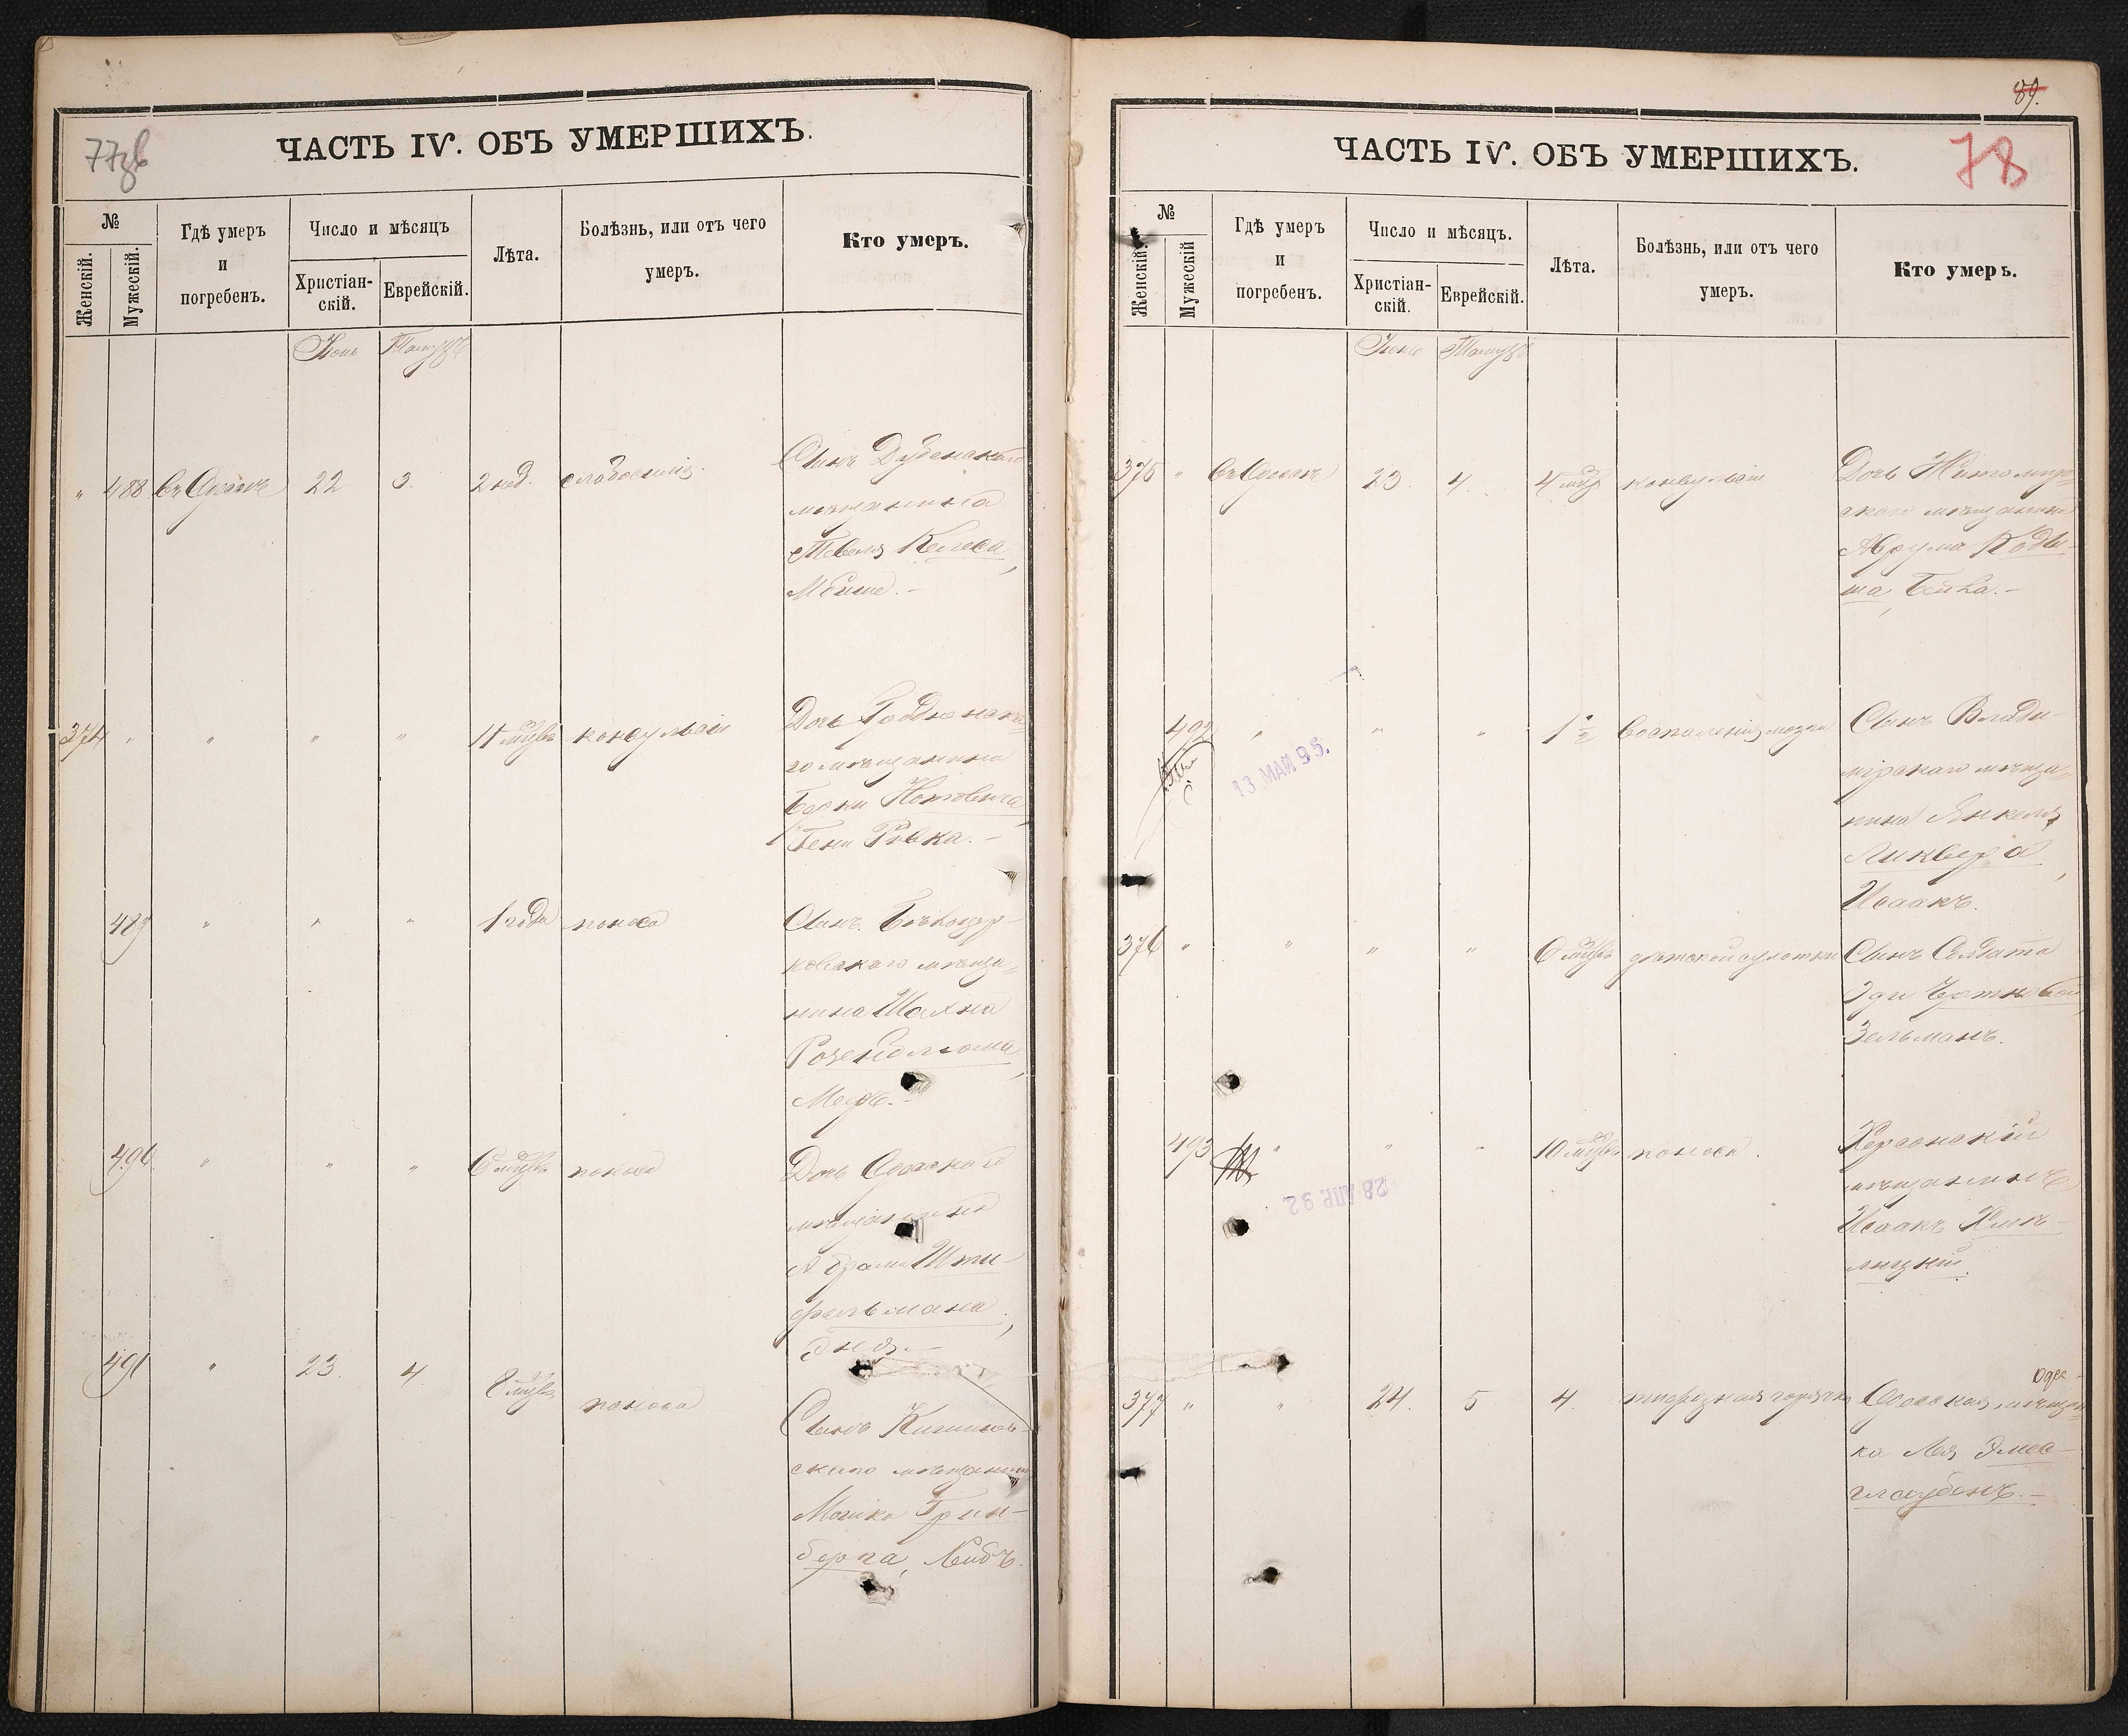 77зв
ЧАСТЬ IV. ОБЪ УМЕРШИХЪ.
№
Женскій.
Мужескій.
Гдѣ умеръ
и
погребенъ.
Число и мѣсяцъ
Христіан-
скій.
Еврейскій.
Лѣта.
Болѣзнь, или отъ чего
умеръ.
Кто умеръ.
Іюнь Тамузъ
" 488 въ Одессѣ 22 3. 2 нед. слабосилія. Сынъ Дубенскаго
мѣщанина
Тевеля
374 " " " " конвульсіи Дочь
го мѣщанина
Берки Нотовича,
Ривка. –
489 " " " 1 года поноса Сынъ Бѣлоцер-
ковскаго мѣща-
нина Шахна
Розенблюма,
Мееръ. –
490 " " " 6 мѣсц. поноса Дочь Одесскаго
мѣщанина
Абрама Шти-
фельмана,
491 " 23. 4. 8 мѣсц. поноса Сынъ Кишинев-
скаго мѣщанина
Мошка Грин-
берга, Лейбъ.
89.
78
ЧАСТЬ IV. ОБЪ УМЕРШИХЪ.
№
Женскій.
Мужескій
Гдѣ умеръ
и
погребенъ.
Число и мѣсяцъ.
Христіан-
скій.
Еврейскій.
Лѣта.
Болѣзнь, или отъ чего
умеръ.
Кто умеръ.
Іюнь Тамузъ
375 " въ Одессѣ 23. 4. 4 мѣс. конвульсіи Дочь Житомир-
скаго мѣщанина
Аврума
Бейла. –
492 " " " 1 ½ воспаленія мозга Сынъ Влади-
мірскаго мѣща-
нина Янкеля
Ликвера,
Исаакъ.
13 МАЙ 95.
376 " " " " 6 мѣсц. дѣтской сухотки Сынъ Солдата
Зельманъ.
493 " " " 10 мѣсц. поноса. Херсонскій
мѣщанинъ
Исаакъ Хмѣ-
льницкій.
28 АПР. 92
377 " " 24. 5 4. тифозная горячка Одесская мѣщан-
Одес-
ка Лея Эмес-
глаубенъ. –